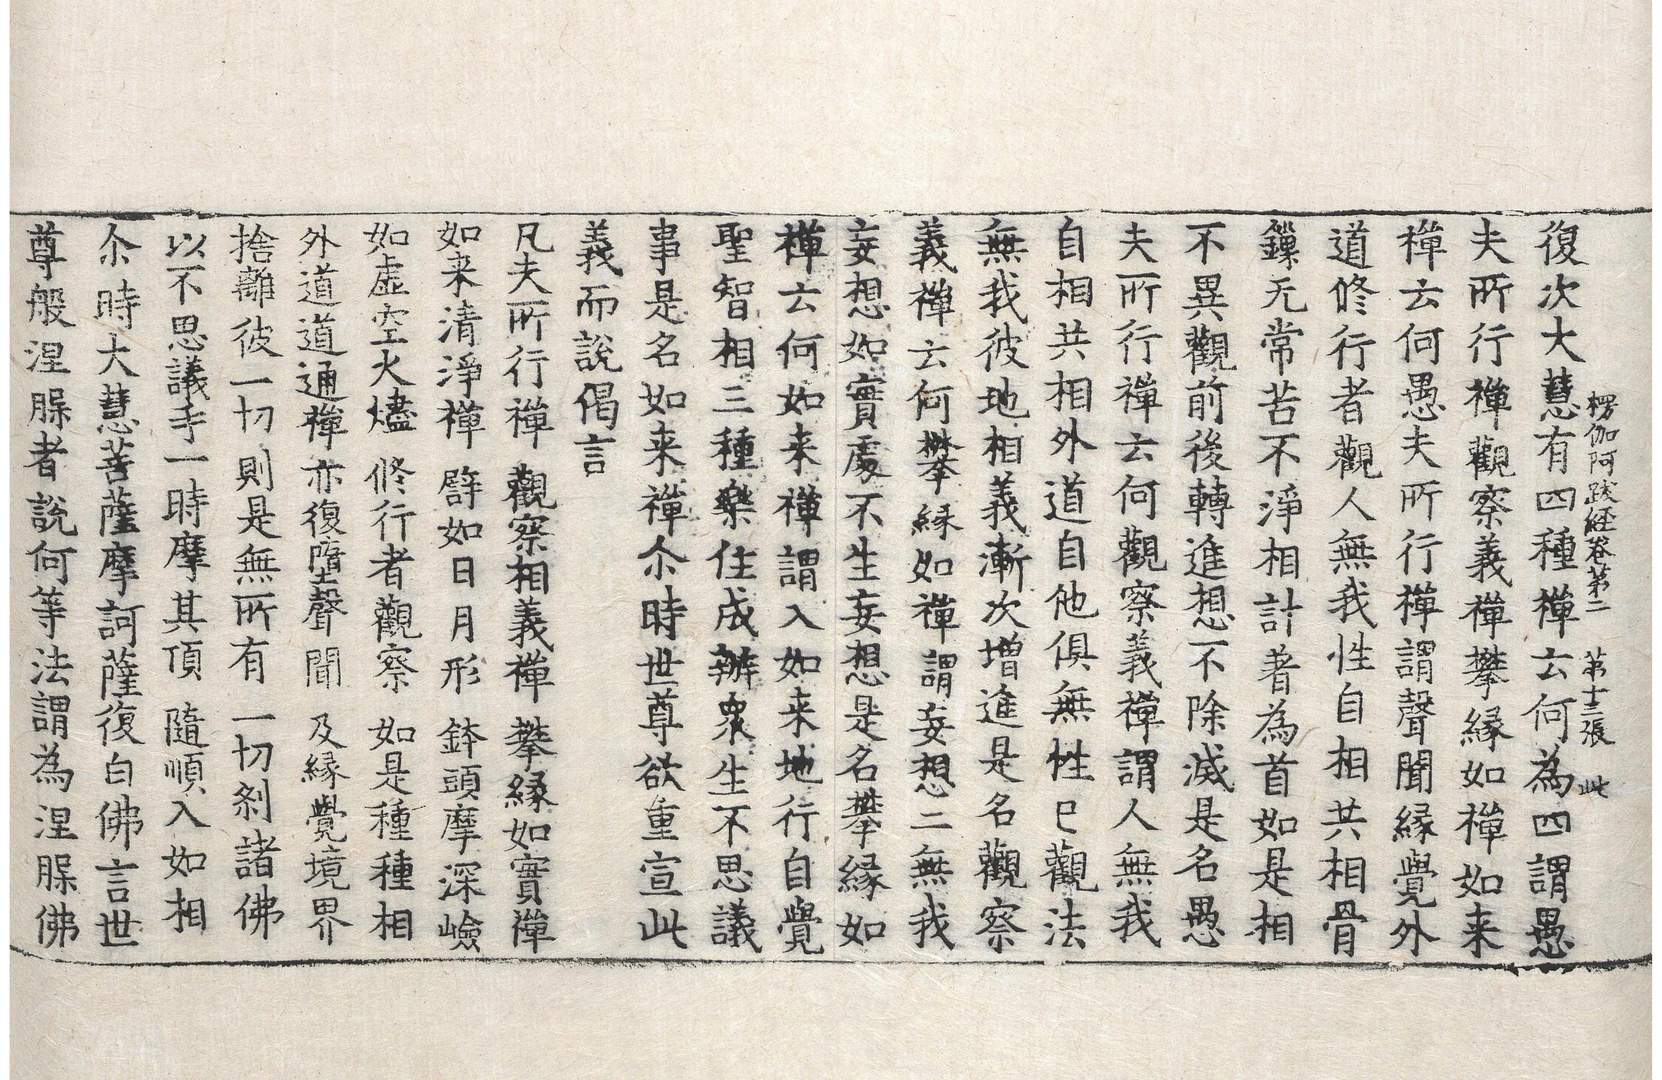 楞伽阿跋経卷第二　第十三張　此
復次大慧有四種禪云何為四謂愚
夫所行禪觀察義禪攀縁如禪如来
禪云何愚夫所行禪謂聲聞縁覺外
道修行者觀人無我性自相共相骨
鏁无常苦不淨相計著為首如是相
不異觀前後轉進想不除滅是名愚
夫所行禪云何觀察義禪謂人無我
自相共相外道自他俱無性已觀法
無我彼地相義漸次增進是名觀察
義禪云何攀縁如禪謂妄想二無我
妄想如實處不生妄想是名攀縁如
禪云何如来禪謂入如来地行自覺
聖智相三種樂住成辦衆生不思議
事是名如来禪尒時世尊欲重宣此
義而說偈言
凡夫所行禪　觀察相義禪　攀縁如實禪
如来清淨禪　譬如日月形　鉢頭摩深嶮
如虛空火燼　修行者觀察　如是種種相
外道道通禪　亦復墮聲聞　及縁覺境界
捨離彼一切　則是無所有　一切剎諸佛
以不思議手　一時摩其頂　隨順入如相
尒時大慧菩薩摩訶薩復白佛言世
尊般涅𦠆者說何等法謂為涅𦠆佛